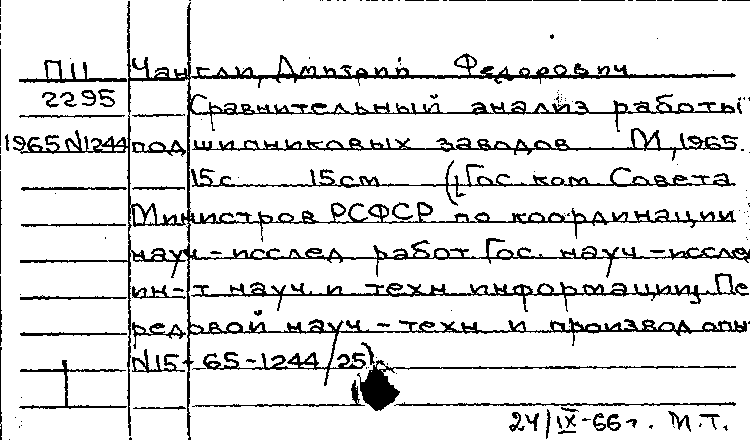 П11 Чангли, Дмитрий Федорович
2295 Сравнительный анализ работы
1965 N1244 подшипниковых заводов М, 1965.
15с 15см (Гос. ком. Совета
Министров РСФСР по координации
науч-исслед работ. Гос. науч-исслед
ин-т науч. и техн информации. Пе
редовой науч.-техн и производ опыт
N15-65-1244/25)
24/IX-66г. М.Т.